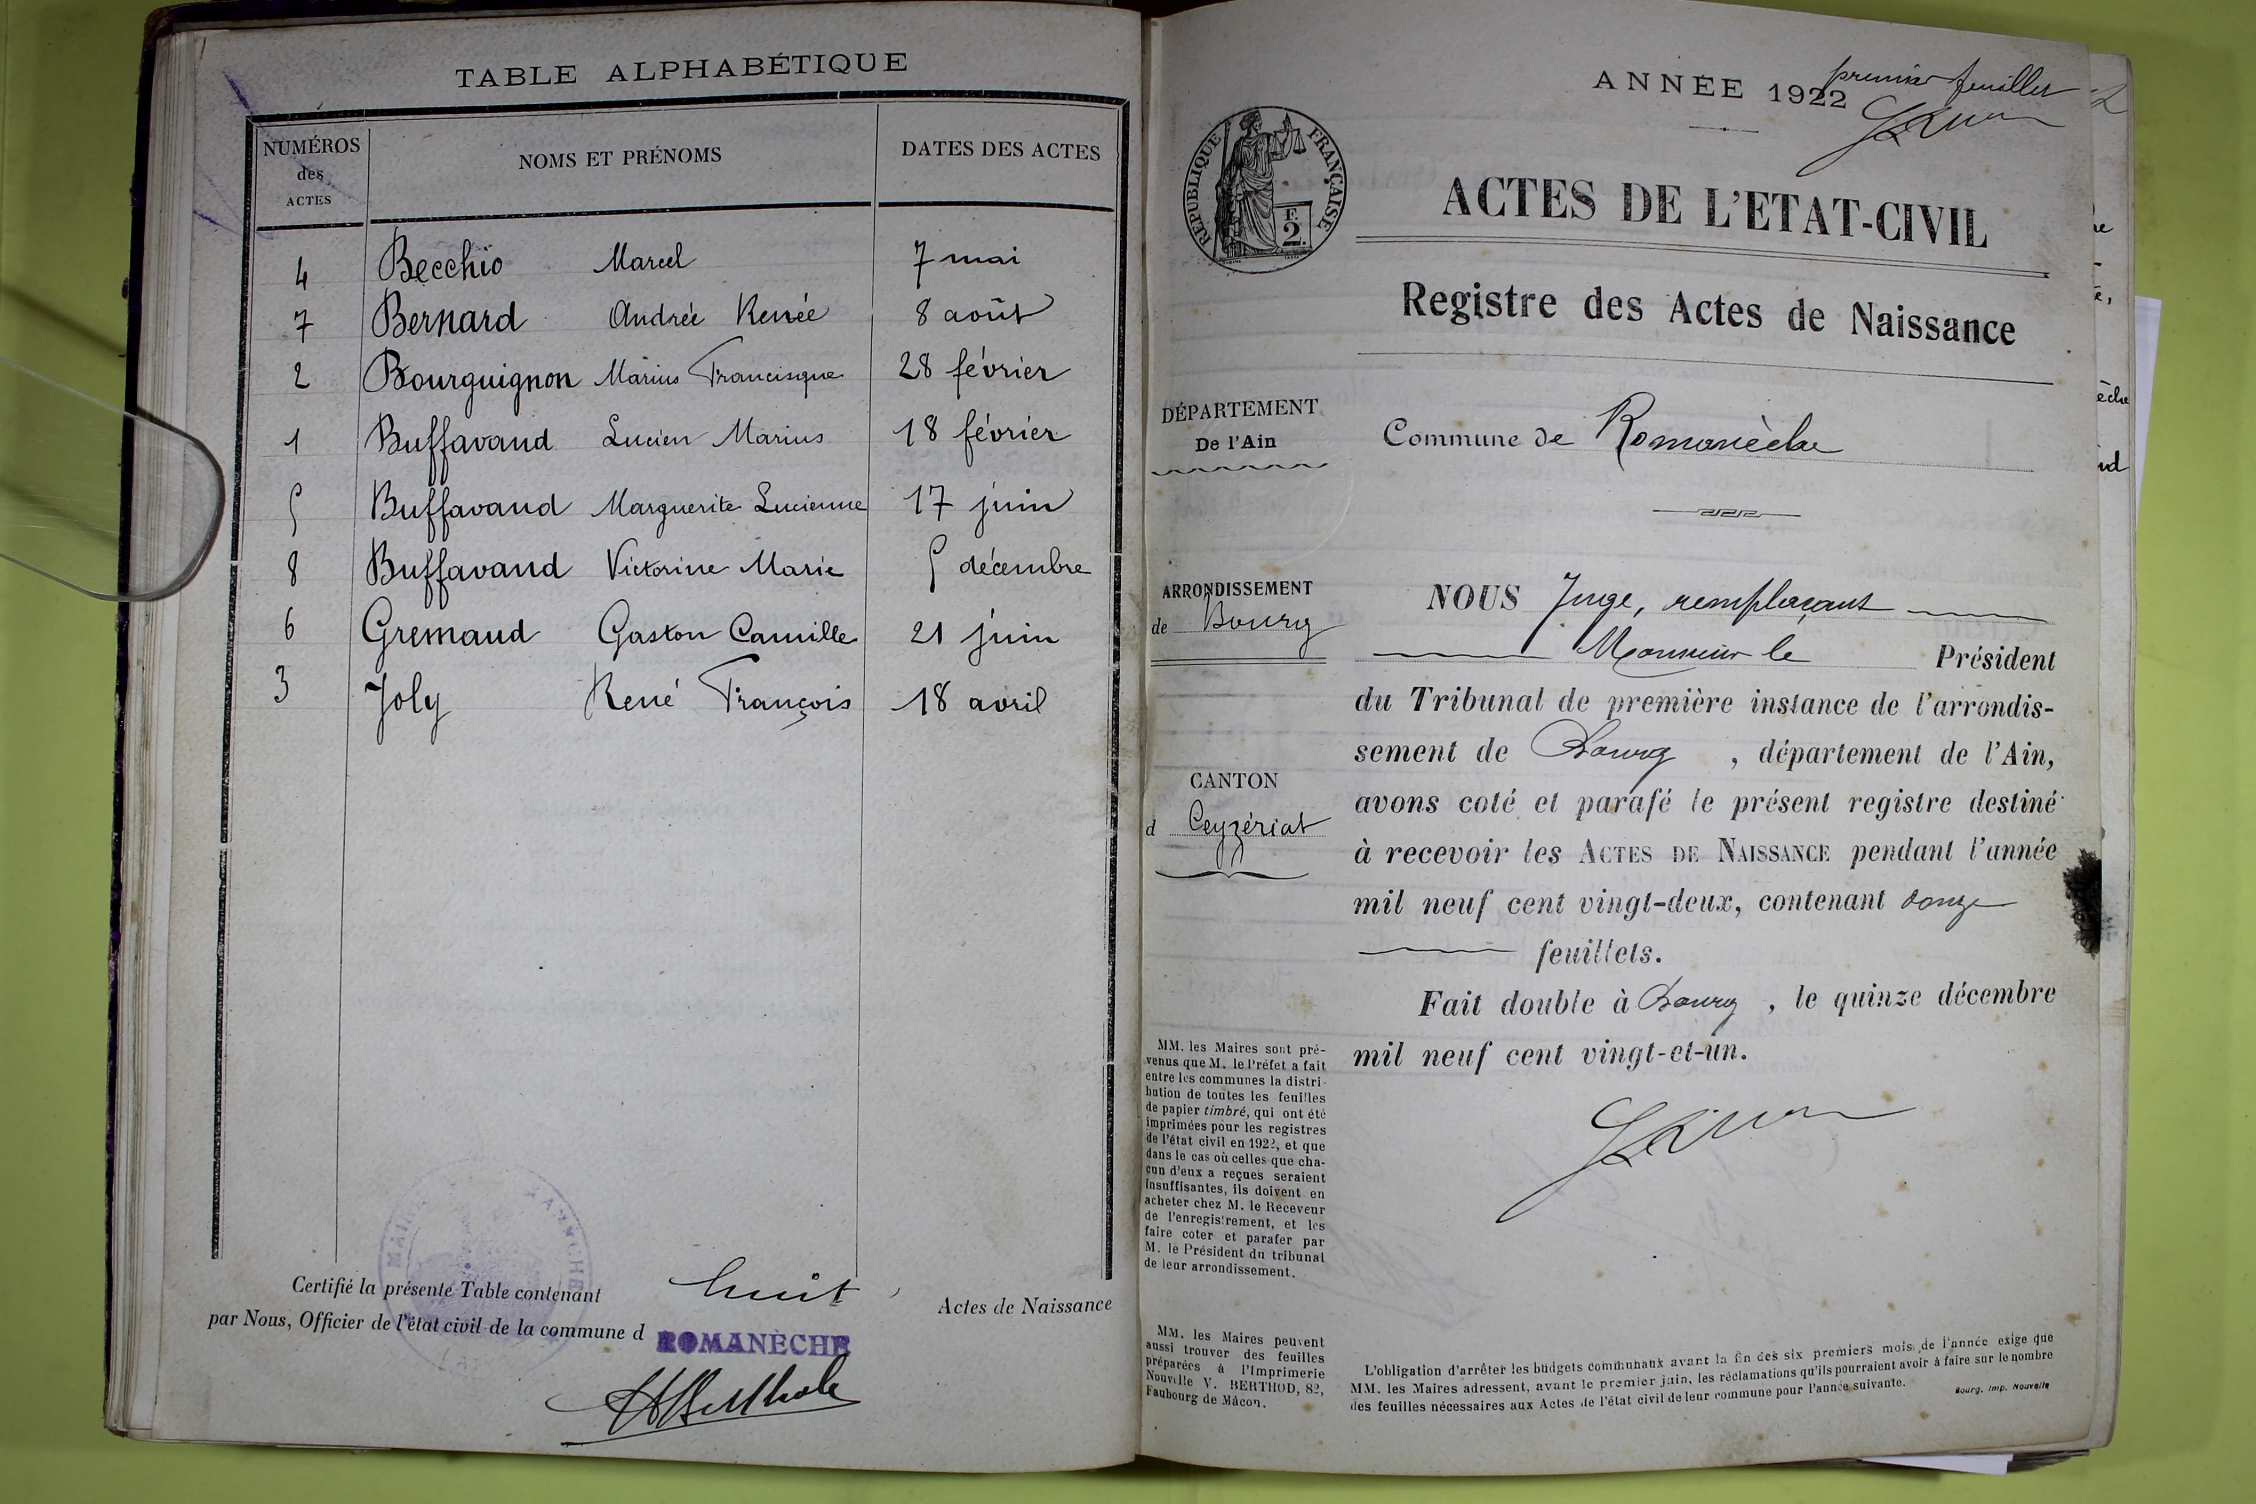 TABLE ALPHABÉTIQUE
NUMÉROS des ACTES
NOMS ET PRÉNOMS
DATES DES ACTES
4 Becchio Marcel 7 mai
7 Bernard Andrée Renée 8 août
2 Bourguignon Marius Francisque 28 février
1 Buffavand Lucien Marius 18 février
5 Buffavand Marguerite Lucienne 17 juin
8 Buffavand Victorine Marie 5 décembre
6 Gremaud Gaston Camille 21 juin
3 Joly René François 18 avril
Certifié la présente Table contenant huit Actes de Naissance
par Nous, Officier de l'état civil de la commune d ROMANÈCHE
premier feuillet
ANNÉE 1922
RÉPUBLIQUE FRANÇAISE
F.
2.
ACTES DE L'ETAT-CIVIL
Registre des Actes de Naissance
DÉPARTEMENT
De l'Ain
Commune de Romanèche
ARRONDISSEMENT
de Bourg
CANTON
d Ceyzériat
NOUS Juge, remplaçant
Monsieur le Président
du Tribunal de première instance de l'arrondis-
sement de Bourg, département de l'Ain,
avons coté et parafé le présent registre destiné
à recevoir les ACTES DE NAISSANCE pendant l'année
mil neuf cent vingt-deux, contenant douze
feuillets.
Fait double à Bourg, le quinze décembre
mil neuf cent vingt-et-un.
MM. les Maires sont pré-
venus que M. le Préfet a fait
entre les communes la distri-
bution de toutes les feuilles
de papier timbré, qui ont été
imprimées pour les registres
de l'état civil en 1922, et que
dans le cas où celles que cha-
cun d'eux a reçues seraient
insuffisantes, ils doivent en
acheter chez M. le Receveur
de l'enregistrement, et les
faire coter et parafer par
M. le Président du tribunal
de leur arrondissement.
MM. les Maires peuvent
aussi trouver des feuilles
préparées à l'Imprimerie
Nouvelle V. BERTHOD, 82,
Faubourg de Mâcon.
L'obligation d'arrêter les budgets communaux avant la fin des six premiers mois de l'année exige que
MM. les Maires adressent, avant le premier juin, les réclamations qu'ils pourraient avoir à faire sur le nombre
des feuilles nécessaires aux Actes de l'état civil de leur commune pour l'année suivante.
Bourg, Imp. Nouvelle